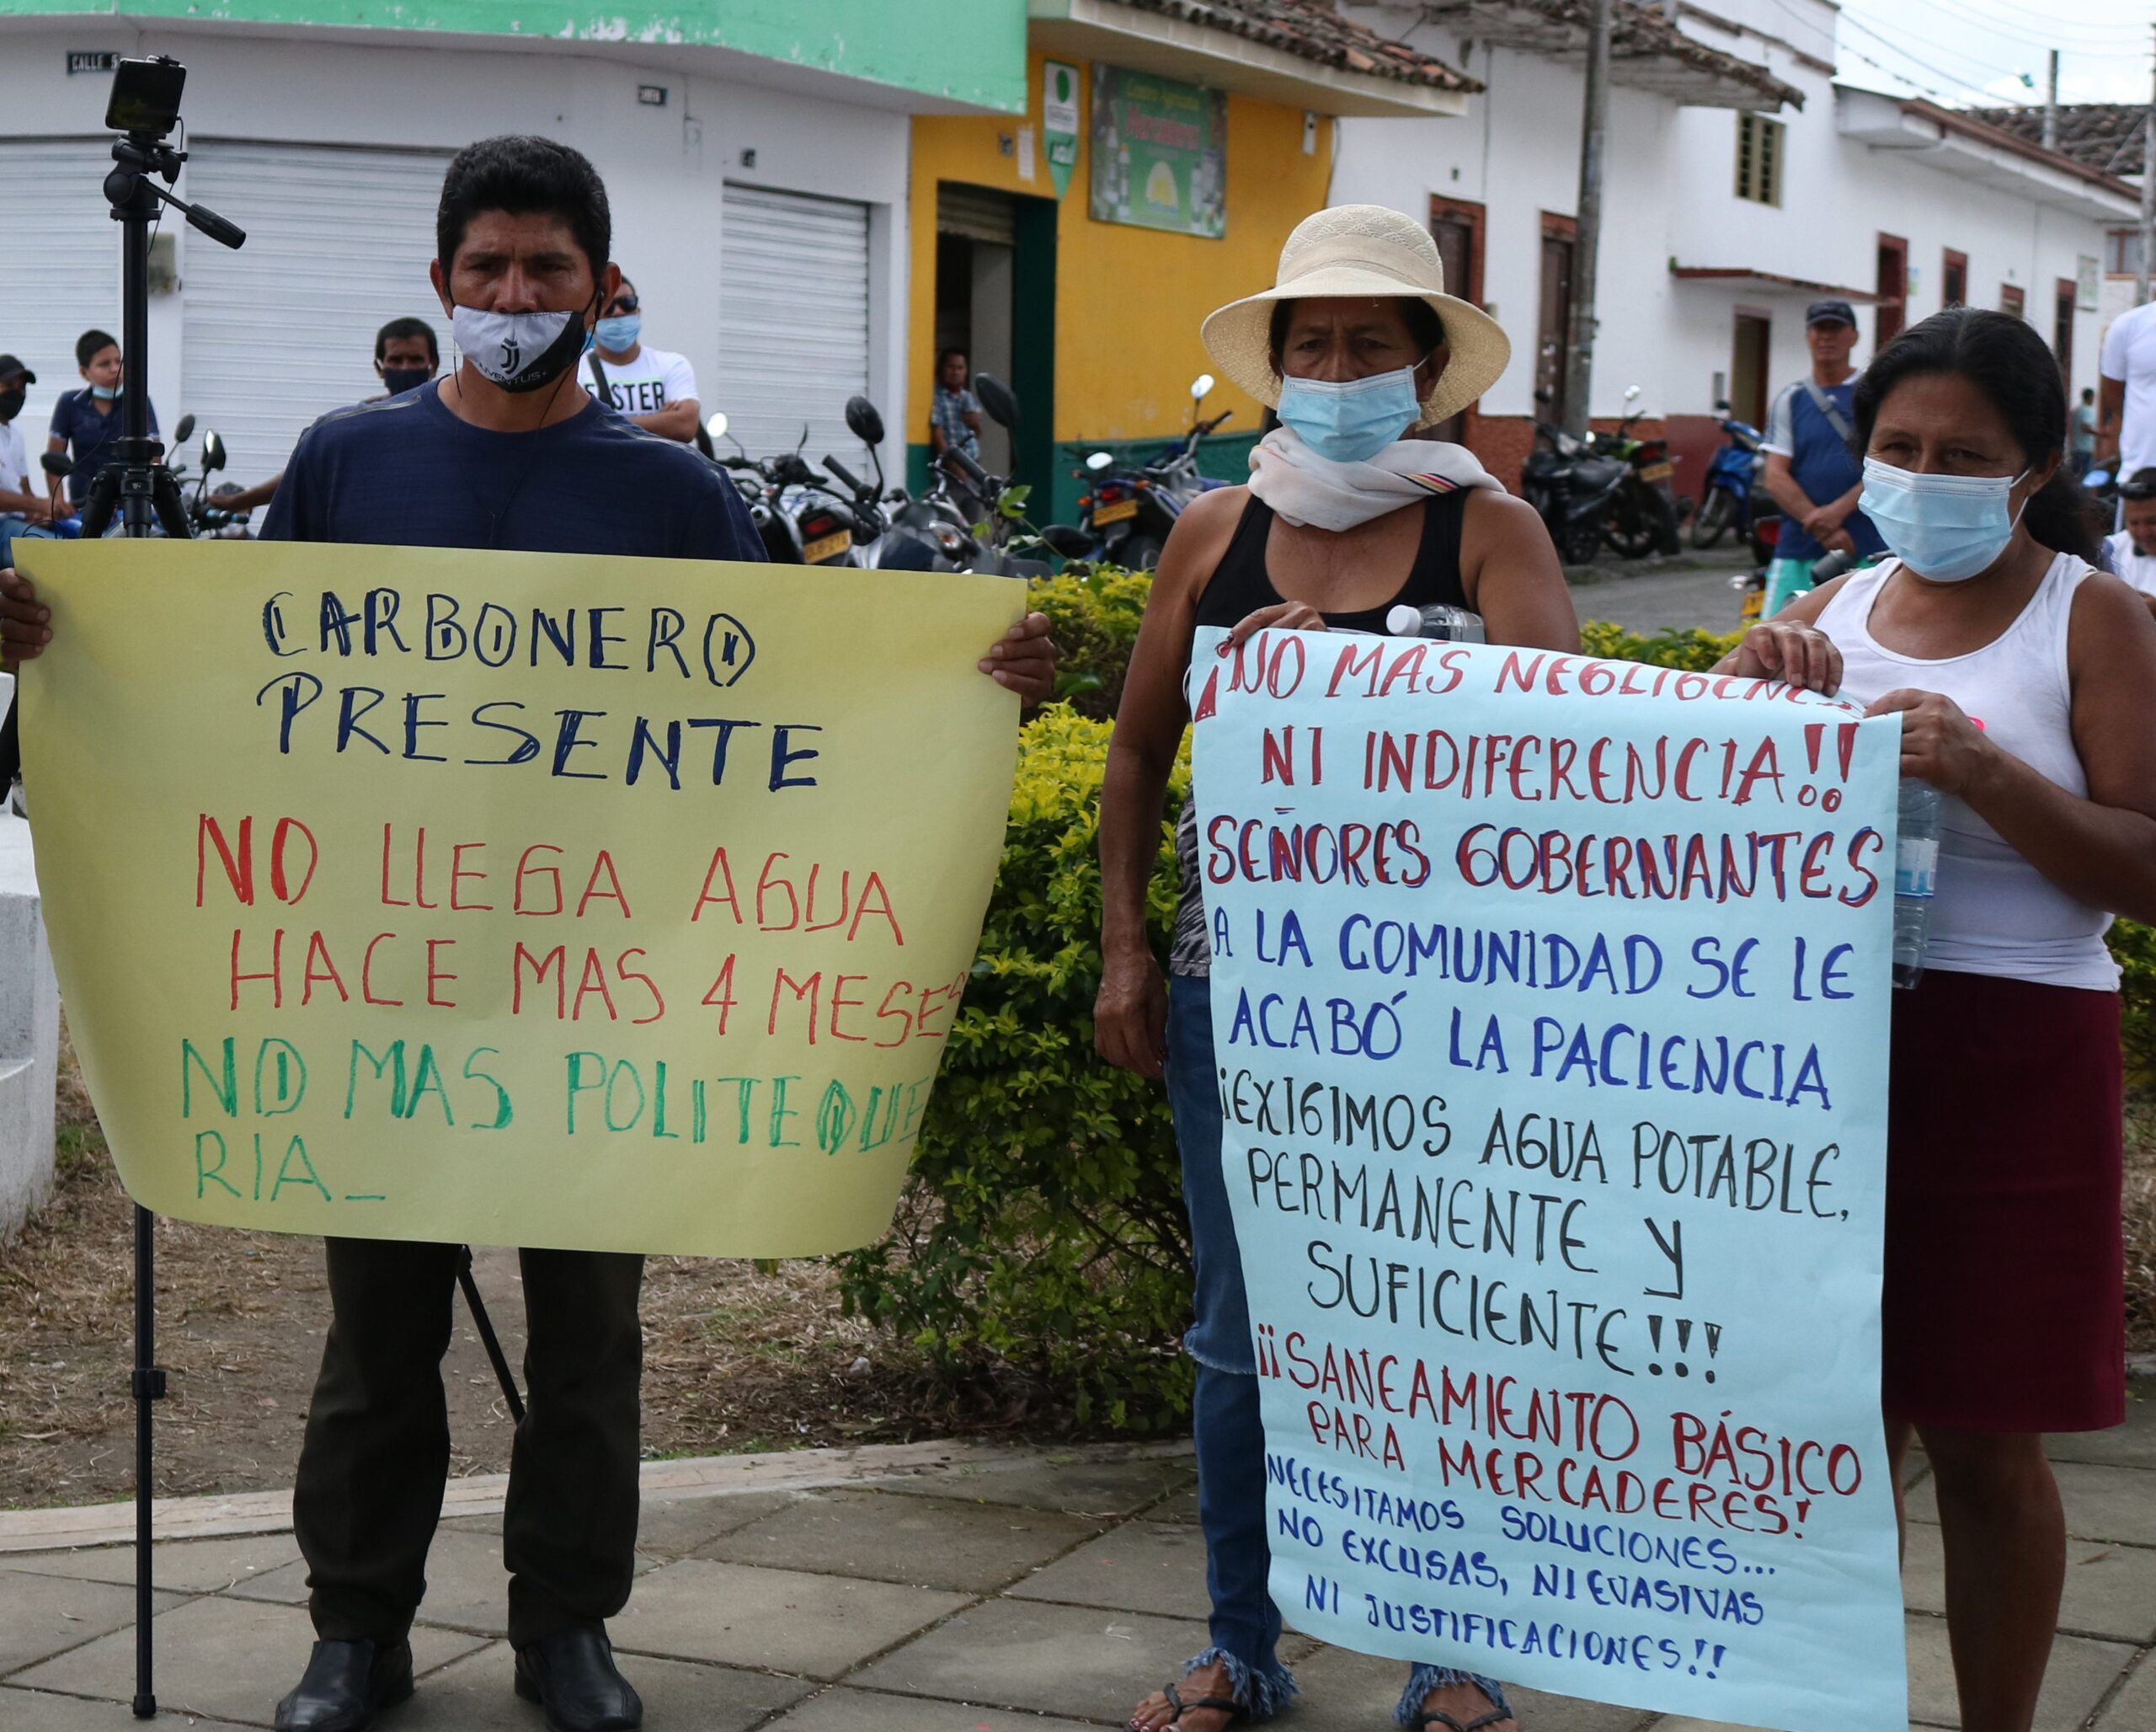 CALLE 5
STER
JUVENTUS
CARBONERO
PRESENTE
NO LLEGA AGUA
HACE MAS 4 MESES
NO MAS POLITEQUE
RIA_
¡NO MÁS NEGLIGENC
NI INDIFERENCIA!!
SEÑORES GOBERNANTES
A LA COMUNIDAD SE LE
ACABÓ LA PACIENCIA
¡EXIGIMOS AGUA POTABLE,
PERMANENTE Y
SUFICIENTE!!!
¡¡SANEAMIENTO BÁSICO
PARA MERCADERES!
NECESITAMOS SOLUCIONES...
NO EXCUSAS, NI EVASIVAS
NI JUSTIFICACIONES!!